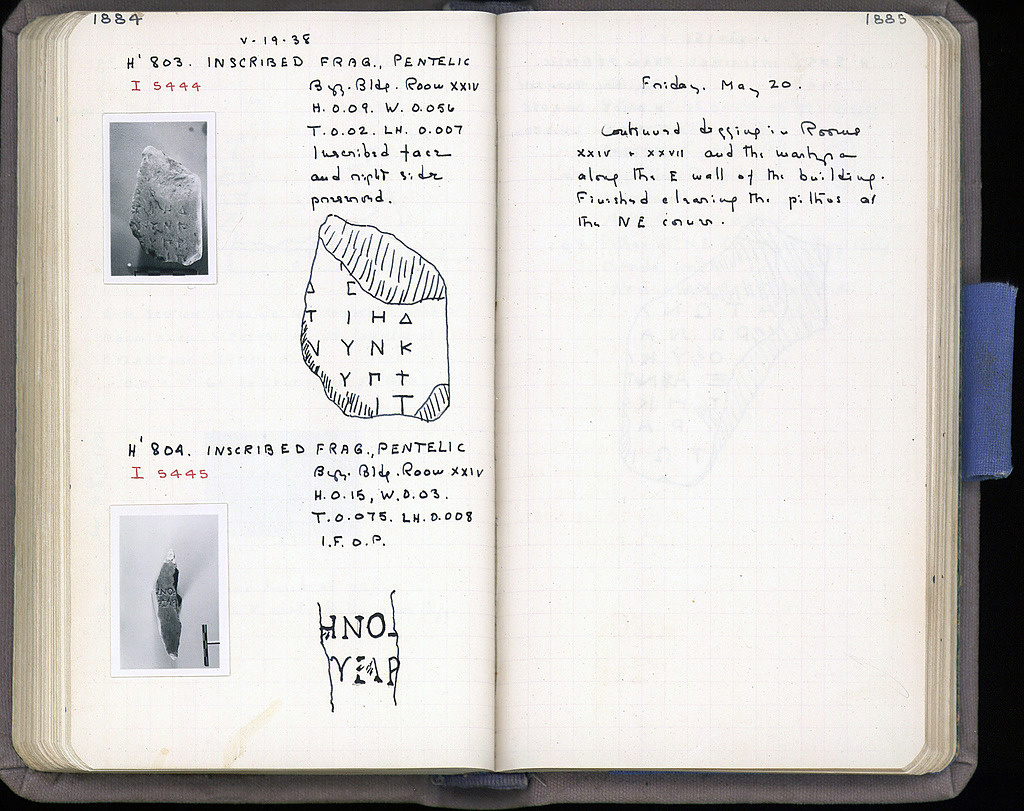 1884
V-19-38
H' 803. INSCRIBED FRAG., PENTELIC
I 5444
Byz. Bldg. Room XXIV
H. 0.09. W. 0.056
T. 0.02. LH. 0.007
Inscribed face
and right side
preserved.
Δ Σ
Τ Ι Η Δ
Ν Υ Ν Κ
Υ Π Τ
Ι Τ
H' 804. INSCRIBED FRAG., PENTELIC
I 5445
Byz. Bldg. Room XXIV
H. 0.15, W. 0.03.
T. 0.075. LH. 0.008
I.F.O.P.
ΗΝΟ
ΥΕΑΡ
1885
Friday. May 20.
Continued digging in Rooms
XXIV + XXVII and the
along the E wall of the building.
Finished cleaning the pithos at
the NE corner.